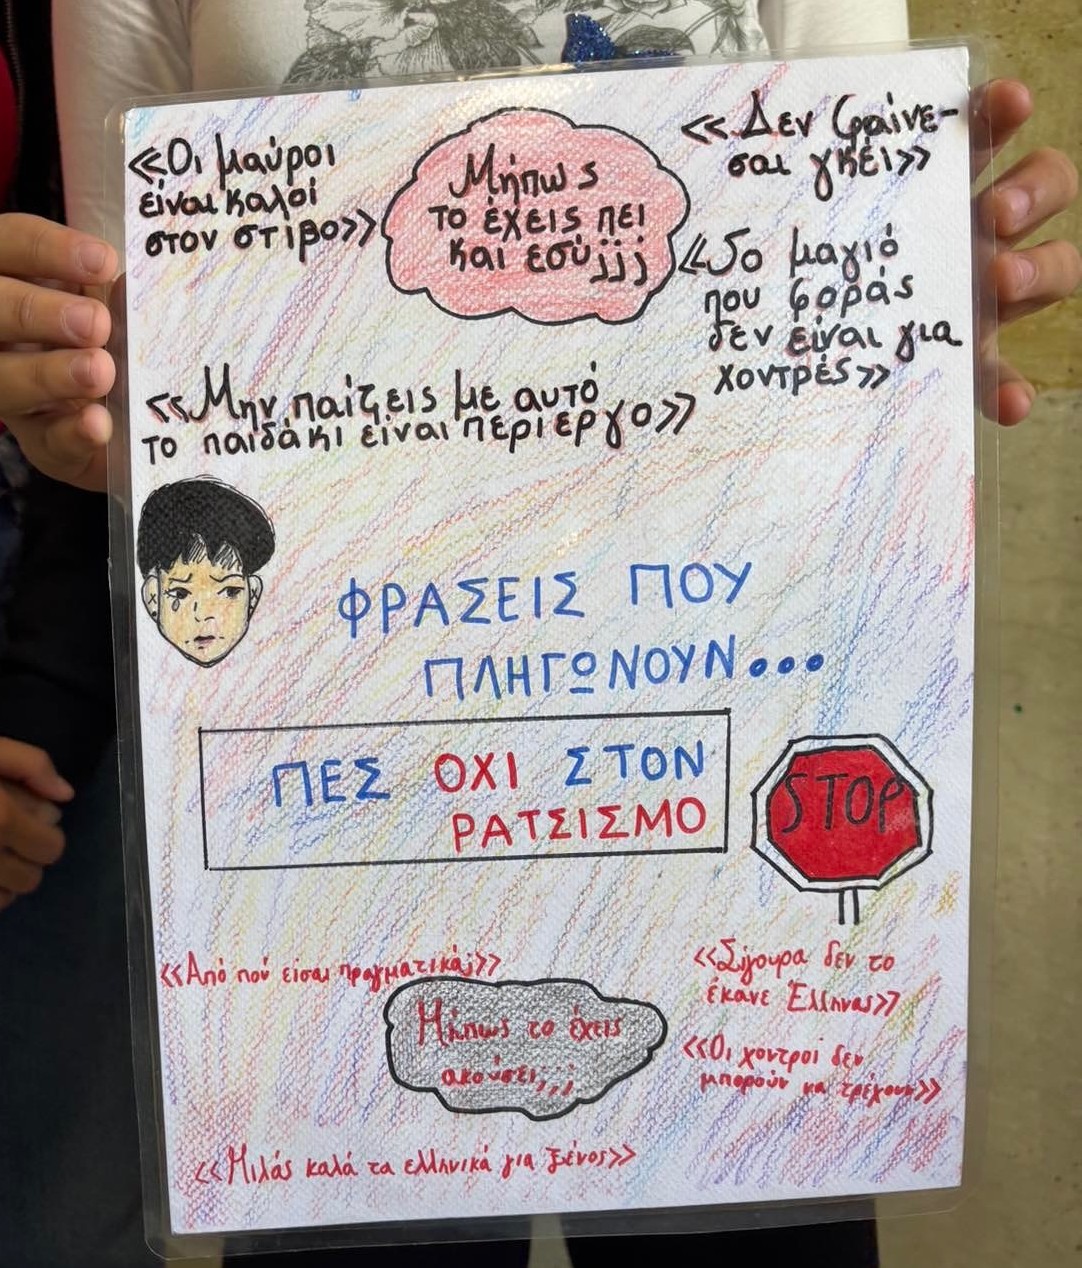 «Οι μαύροι
είναι καλοί
στον στιβο»
Μήπως
το έχεις πει
και εσύ;;;
«Δεν φαίνε-
σαι γκέι»
«Το μαγιό
που φοράς
δεν είναι για
χοντρές»
«Μην παίζεις με αυτό
το παιδάκι είναι περιεργο»
ΦΡΑΣΕΙΣ ΠΟΥ
ΠΛΗΓΩΝΟΥΝ...
ΠΕΣ ΟΧΙ ΣΤΟΝ
ΡΑΤΣΙΣΜΟ
STOP
«Από πού είσαι πραγματικά;»
Μήπως το έχεις
ακούσει;;;
«Σίγουρα δεν το
έκανε Έλληνας»
«Οι χοντροί δεν
μπορούν να τρέχουν»
«Μιλάς καλά τα ελληνικά για ξένος»